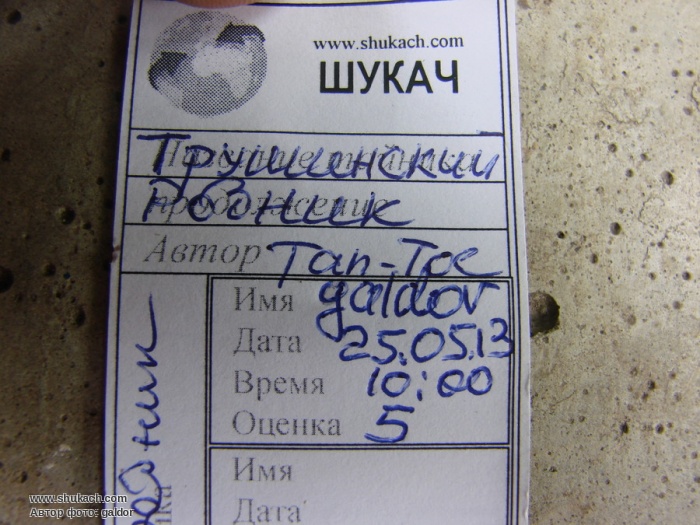 www.shukach.com
ШУКАЧ
Трушинский
Родник
Автор Tan-Toc
Имя galdor
Дата 25.05.13
Время 10:00
Оценка 5
Имя
Дата
www.shukach.com
Автор фото: galdor